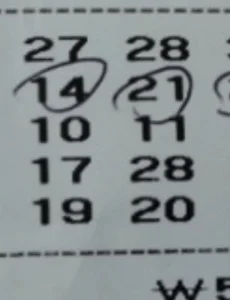 27 28
14 21
10 11
17 28
19 20
W